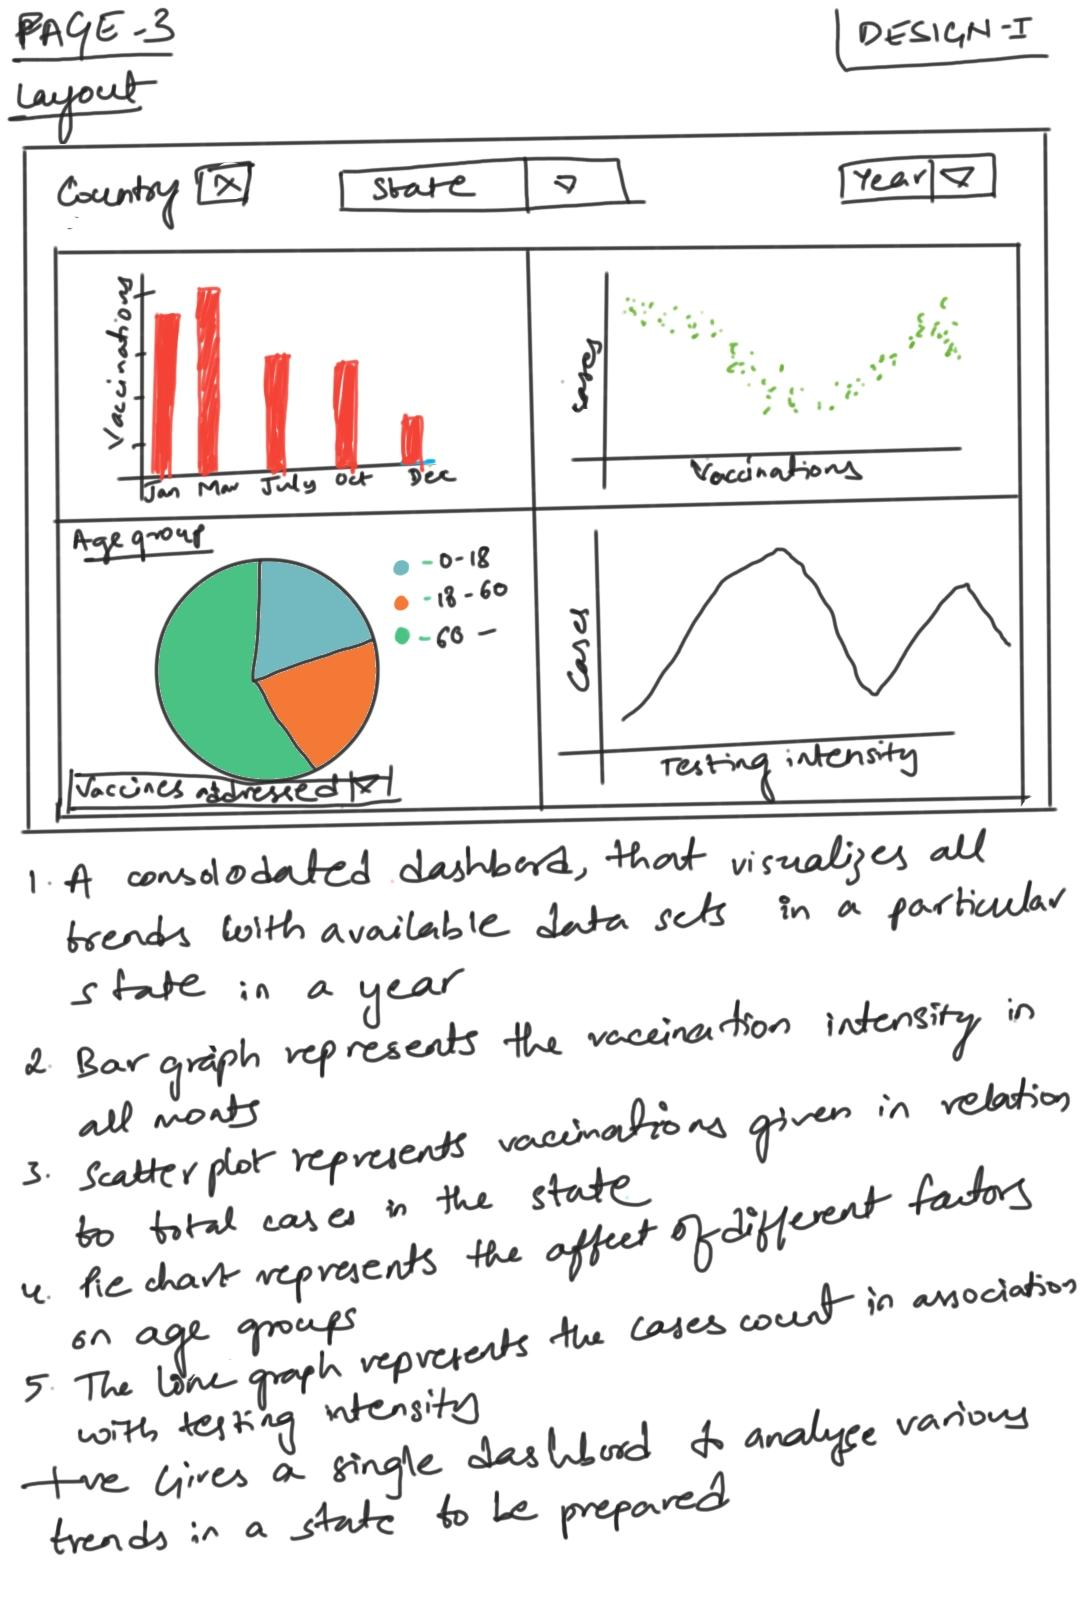 PAGE-3
DESIGN-I
Layout
Country
State
Year
Vaccinations
Jan Mar July Oct Dec
cases
Vaccinations
Age group
-0-18
-18-60
-60 -
Vaccines addressed
Cases
Testing intensity
1. A consolodated dashbord, that visualizes all
trends with available data sets in a particular
state in a year
2. Bar graph represents the vaccination intensity in
all monts
3. Scatter plot represents vaccinations given in relation
to total cases in the state
4. Pie chart represents the affect of different factors
on age groups
5. The line graph represents the cases count in association
with testing intensity
+ve Gives a single dashbord to analyse various
trends in a state to be prepared